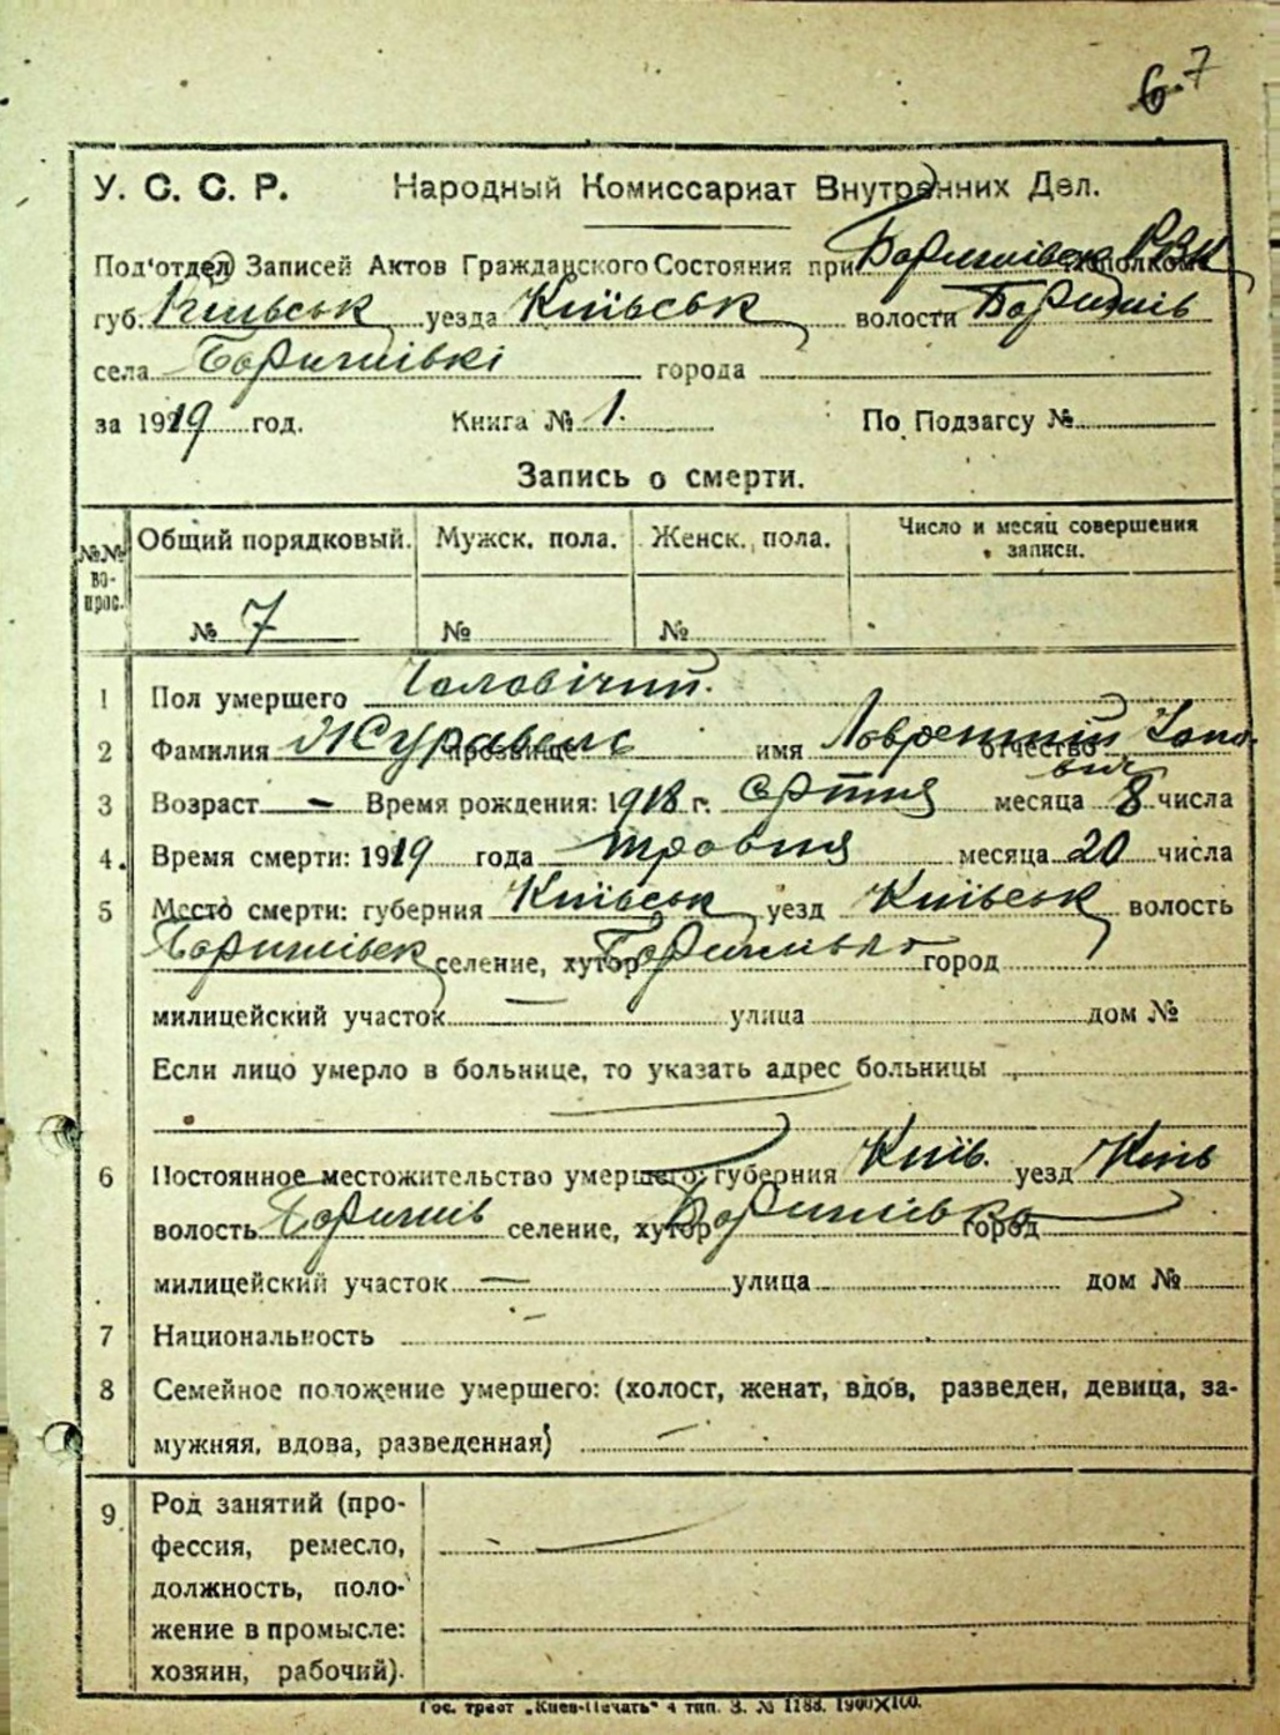 6. 7
У. С. С. Р. Народный Комиссариат Внутренних Дел.
Под'отдел Записей Актов Гражданского Состояния при Баришівськ РВК исполкоме
губ. Київськ уезда Київськ волости Баришів
села Баришівкі города
за 1919 год. Книга № 1. По Подзагсу №
Запись о смерти.
№№ во-прос. Общий порядковый. Мужск. пола. Женск. пола. Число и месяц совершения записи.
№ 7 № №
1 Пол умершего Чоловічий.
2 Фамилия Журавель прозвище имя Лаврентій отчество
вич
3 Возраст — Время рождения: 1918 г. серпня месяца 8 числа
4. Время смерти: 1919 года травня месяца 20 числа
5 Место смерти: губерния Київськ уезд Київськ волость
Баришівськ селение, хутор Баришівка город
милицейский участок — улица дом №
Если лицо умерло в больнице, то указать адрес больницы
6 Постоянное местожительство умершего: губерния Київ. уезд Київ
волость Баришів селение, хутор Баришівка город
милицейский участок — улица дом №
7 Национальность
8 Семейное положение умершего: (холост, женат, вдов, разведен, девица, за-
мужняя, вдова, разведенная) —
9 Род занятий (про-
фессия, ремесло,
должность, поло-
жение в промысле:
хозяин, рабочий).
Гос. трест „Киев-Печать" 4 тип. З. № 1188. 1900Х100.